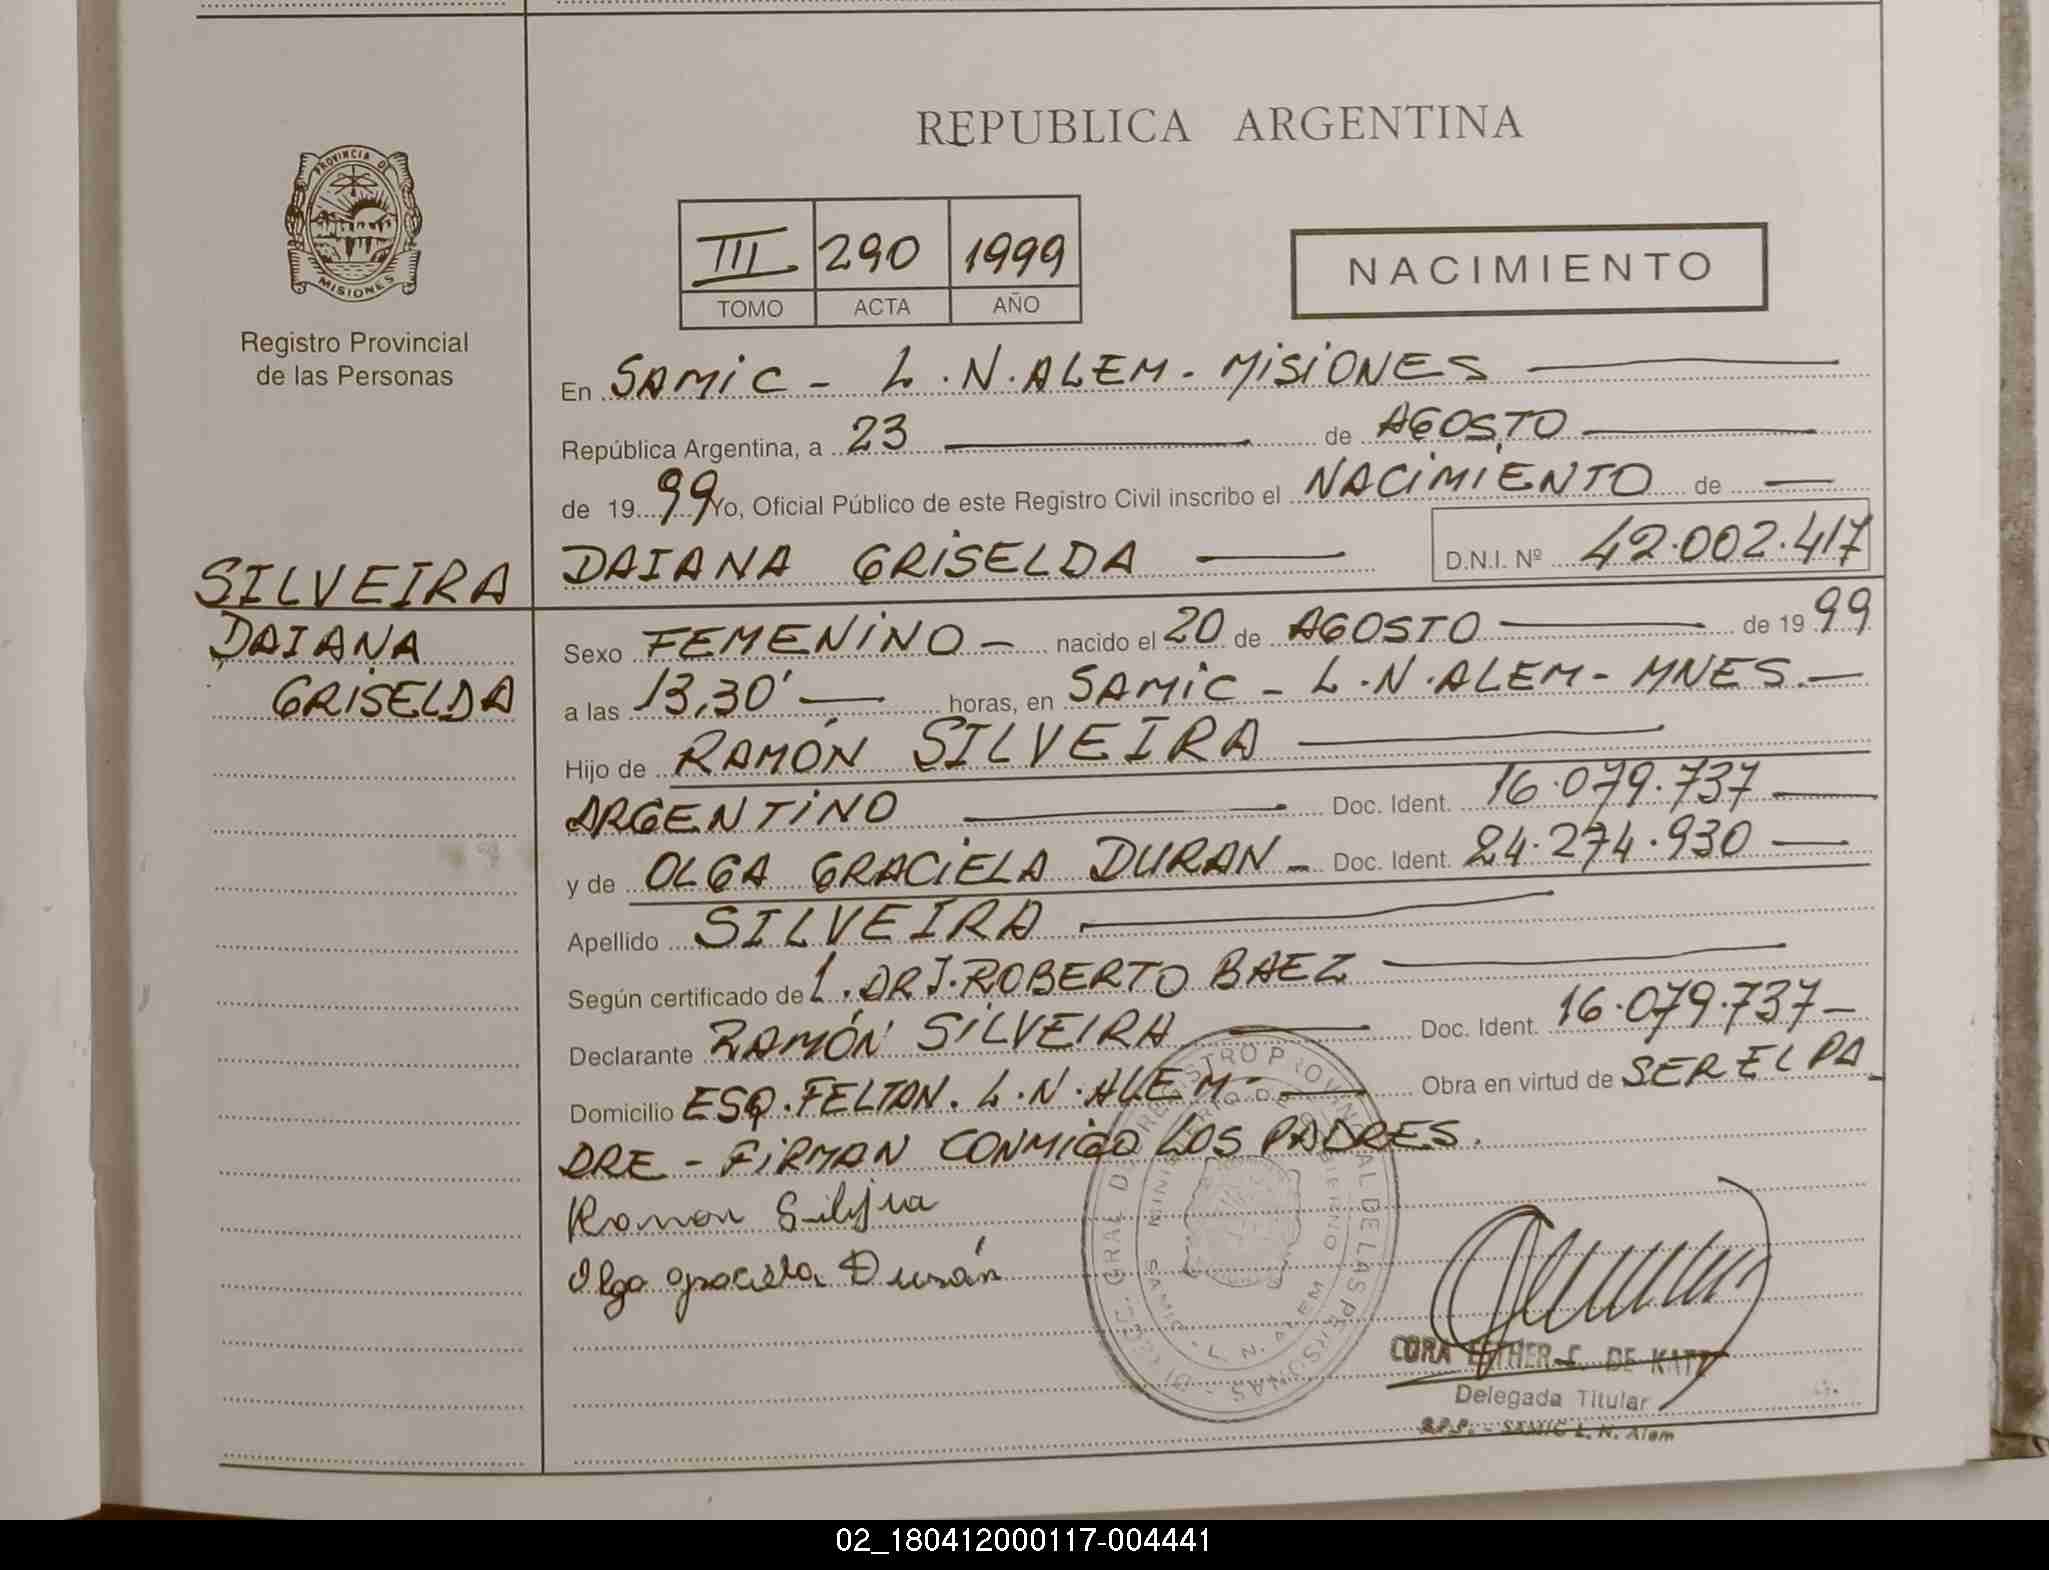 REPUBLICA ARGENTINA
PROVINCIA DE
MISIONES
Registro Provincial
de las Personas
III 290 1999
TOMO ACTA AÑO
NACIMIENTO
En SAMIC - L.N.ALEM - MISIONES
República Argentina, a 23 de AGOSTO
de 1999 Yo, Oficial Público de este Registro Civil inscribo el NACIMIENTO de
DAIANA GRISELDA D.N.I. Nº 42.002.417
SILVEIRA
DAIANA
GRISELDA
Sexo FEMENINO - nacido el 20 de AGOSTO de 1999
a las 13,30' horas, en SAMIC - L.N.ALEM - MNES.
Hijo de RAMÓN SILVEIRA
ARGENTINO Doc. Ident. 16.079.737
y de OLGA GRACIELA DURAN - Doc. Ident. 24.274.930
Apellido SILVEIRA
Según certificado de L. DR J. ROBERTO BAEZ
Declarante RAMÓN SILVEIRA Doc. Ident. 16.079.737-
Domicilio ESQ. FELTAN. L.N.ALEM - Obra en virtud de SER EL PA_
DRE - FIRMAN CONMIGO LOS PADRES.
Ramon
Olga Graciela Durán
DIREC. GRAL DE REGISTRO PROVINCIAL DE LAS PERSONAS
MINISTERIO DE GOBIERNO
SAMIC - L.N. ALEM
CORA ESTHER C. DE KATZ
Delegada Titular
R.P.P. - SAMIC L. N. Alem
02_180412000117-004441